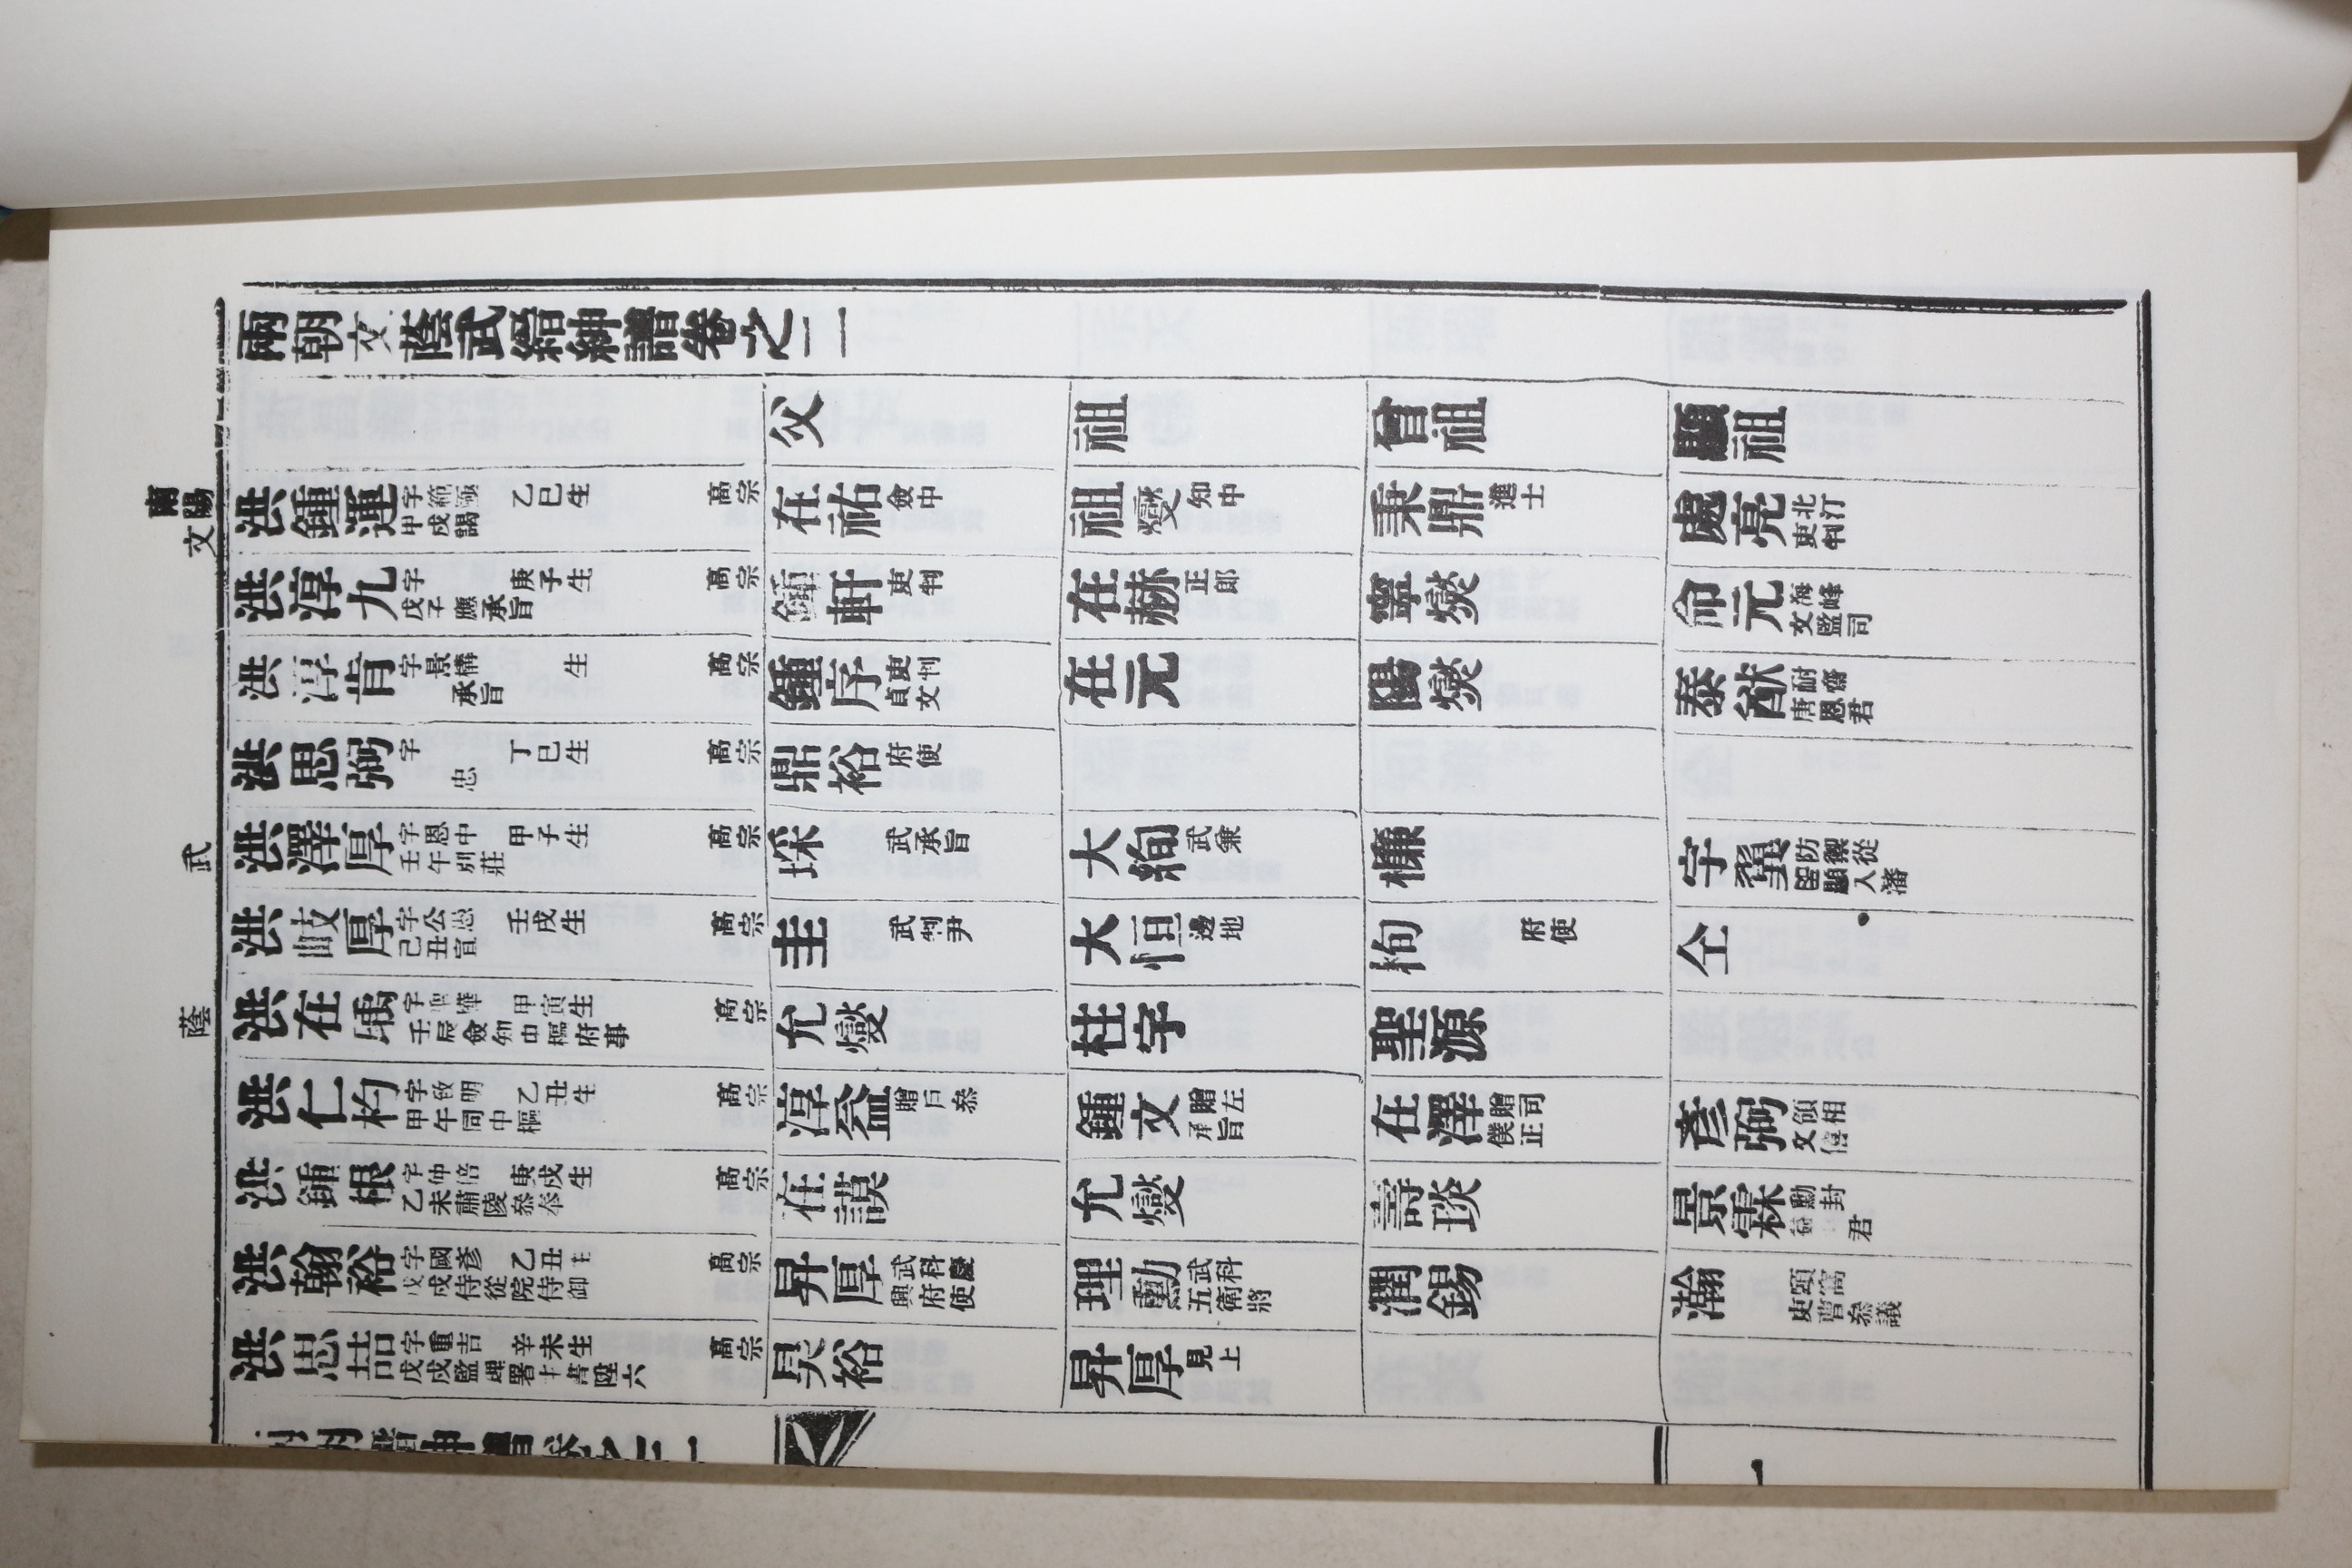 兩朝文蔭武縉紳譜卷之二
父
祖
曾祖
顯祖
南陽
文
洪鍾運
字範
乙巳生
甲戌謁
高宗
在祐
僉中
祖燮
知中
秉鼎
進士
處亮
北汀
吏判
洪淳九
字
庚子生
戊子應承旨
高宗
鍾軒
吏判
在赫
正郎
寧燮
命元
海峰
文監司
洪淳肯
字景構
生
承旨
高宗
鍾序
吏判
貞文
在元
陽燮
泰猷
耐齋
唐恩君
洪思弼
字
丁巳生
忠
高宗
鼎裕
府使
武
洪澤厚
字恩中
甲子生
壬午別莊
高宗
埰
武承旨
大絢
武兼
㯠
宇翼
防禦從
昭顯入瀋
洪岐厚
字公
壬戌生
己丑宣
高宗
圭
武判尹
大恒
邊地
栒
府使
仝
蔭
洪在
甲寅生
壬辰僉知中樞府事
高宗
允燮
柱宇
聖源
洪仁杓
字敬明
乙丑生
甲午同中樞
高宗
淳益
贈戶參
鍾文
贈左
承旨
在澤
贈司
僕正
彥弼
領相
文僖
洪鍾根
字仲倍
庚戌生
乙未肅陵參奉
高宗
在謨
允燮
壽琰
景霖
勳封
君
洪翰裕
字國彥
乙丑生
戊戌侍從院侍御
高宗
昇厚
武科慶
興府使
理勳
武科
五衛將
潤錫
瀚
頤窩
吏曹參議
洪思喆
字重吉
辛未生
戊戌監理署主書陞六
高宗
昊裕
昇厚
見上
縉紳譜卷之二
一